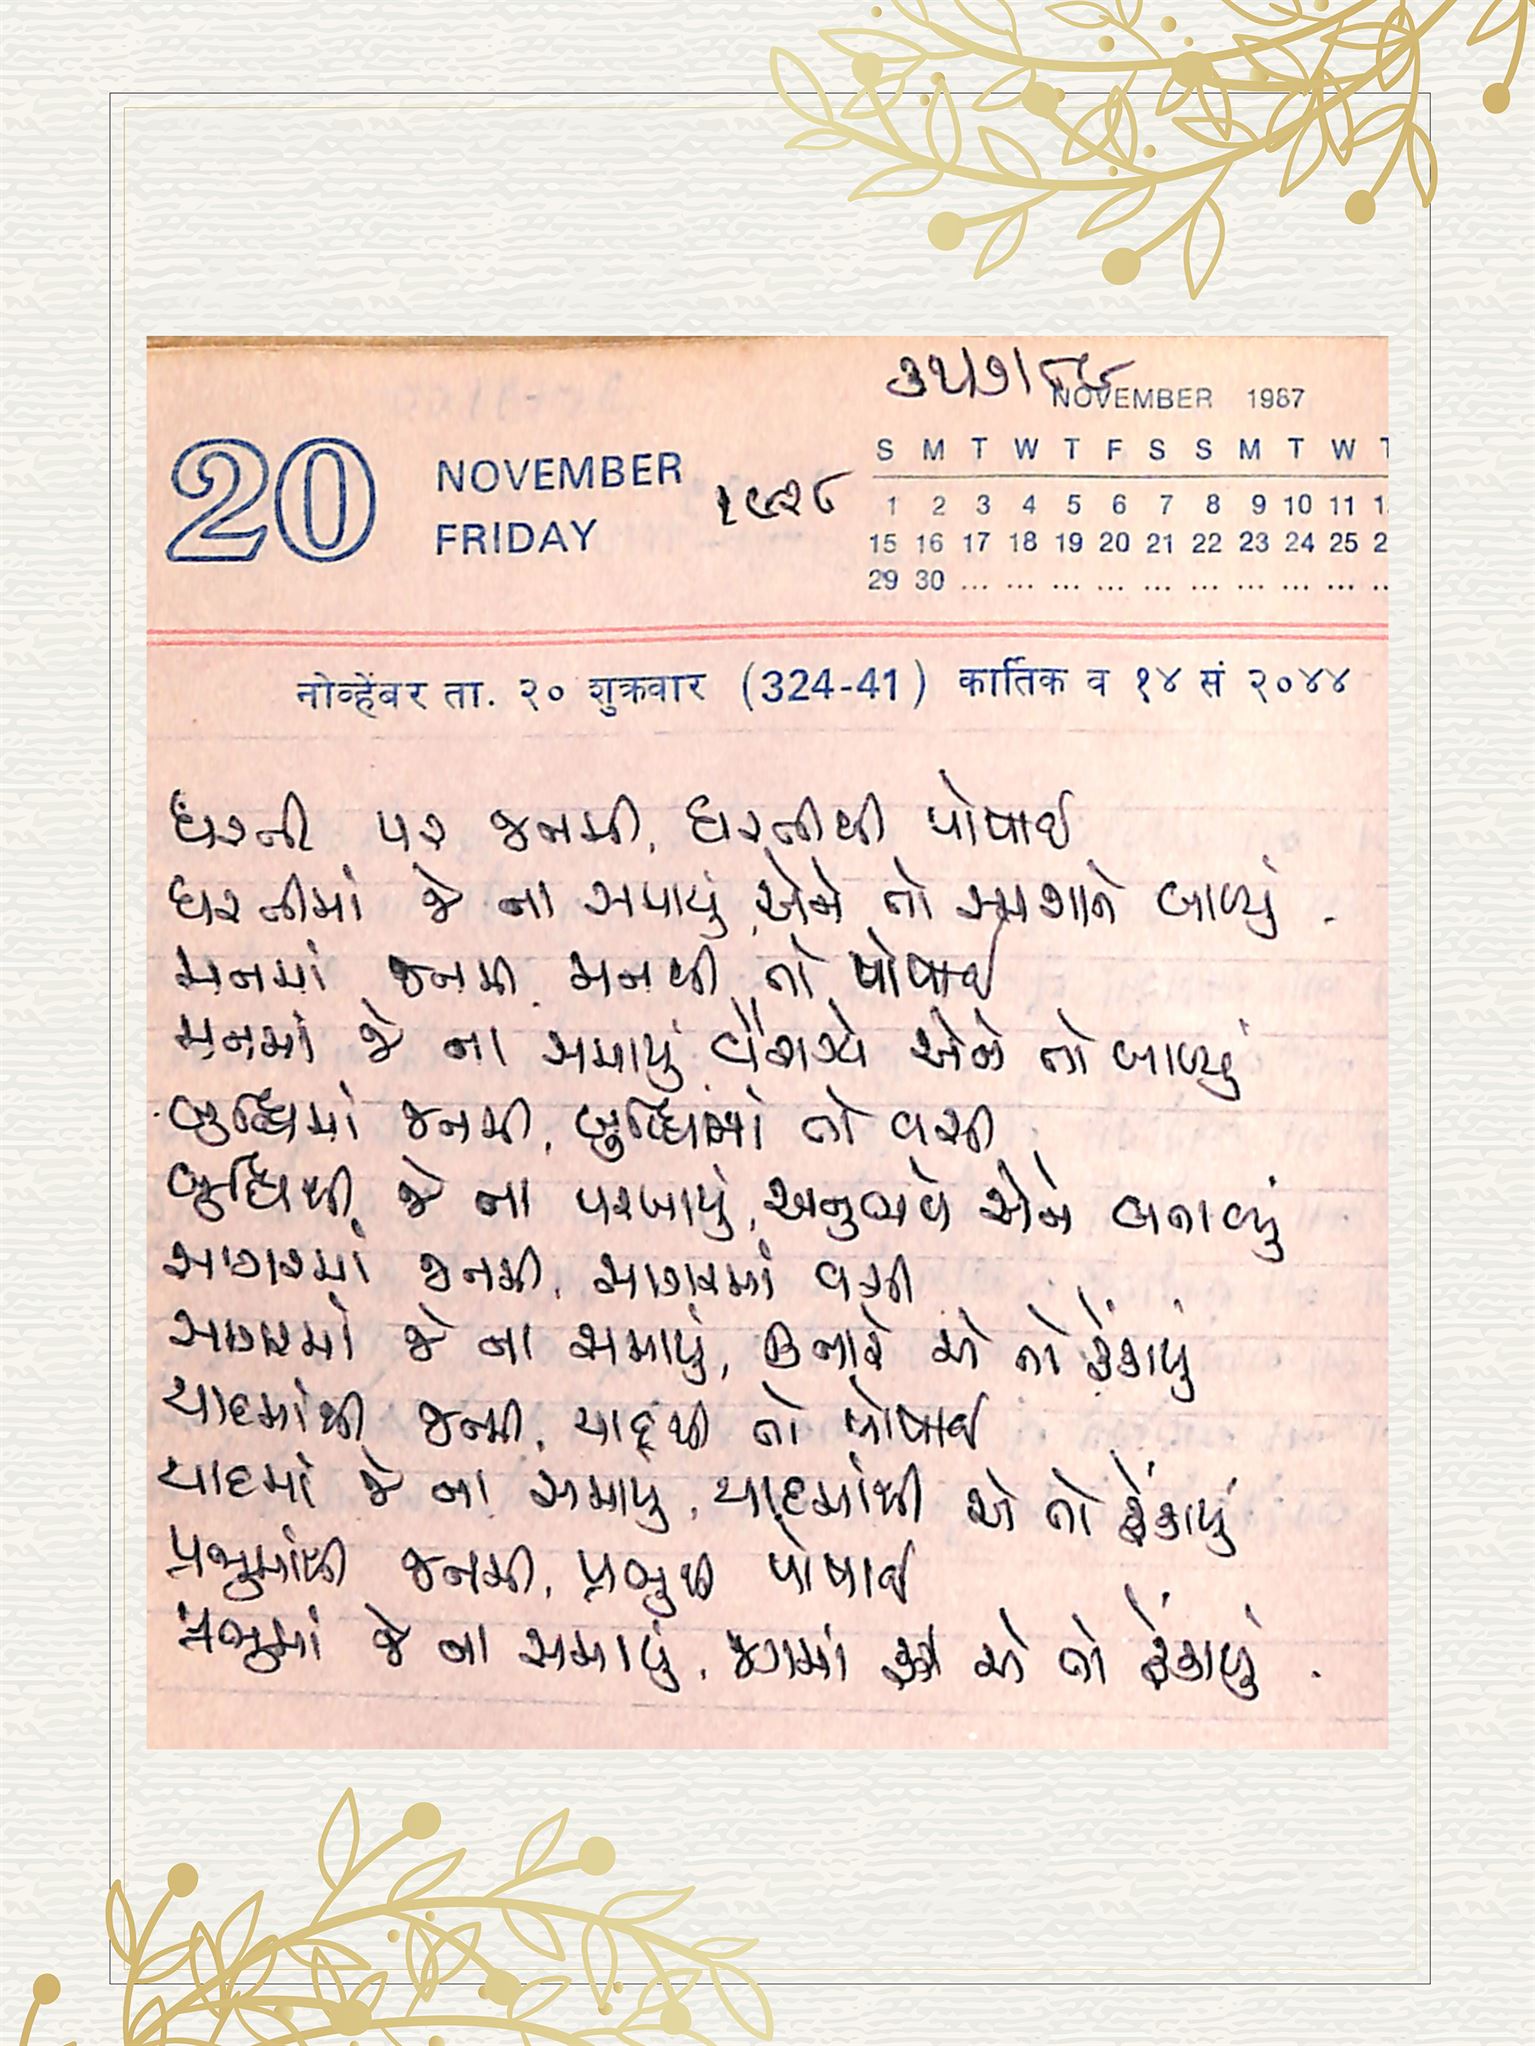 NOVEMBER 1987
20 NOVEMBER
FRIDAY
૧૯૨૮
S M T W T F S S M T W T
1 2 3 4 5 6 7 8 9 10 11 1
15 16 17 18 19 20 21 22 23 24 25 2
29 30 ... ... ... ... ... ... ... ... ... ..
नोव्हेंबर ता. २० शुक्रवार (324-41) कार्तिक व १४ सं २०४४
ધરની પર જનમી, ધરતીથી પોષાઈ
ધરતીમાં જે ના સમાયું, એને તો સ્મશાને બાળ્યું .
મનમાં જનમી, મનથી તો પોષાઈ
મનમાં જે ના સમાયું, વૈરાગ્યે એને તો બાળ્યું
બુદ્ધિમાં જનમી, બુદ્ધિમાં તો વસી
બુદ્ધિથી જે ના પરખાયું, અનુભવે એને બતાવ્યું
સાગરમાં જનમી, સાગરમાં વસી
સાગરમાં જે ના સમાયું, કિનારે એ તો ફેંકાયું
યાદમાંથી જન્મી, યાદથી તો પોષાઈ
યાદમાં જે ના સમાયું, યાદમાંથી એ તો ફેંકાયું
પ્રભુમાંથી જનમી, પ્રભુથી પોષાઈ
પ્રભુમાં જે ના સમાયું, જગમાં એ તો ફેંકાયું .